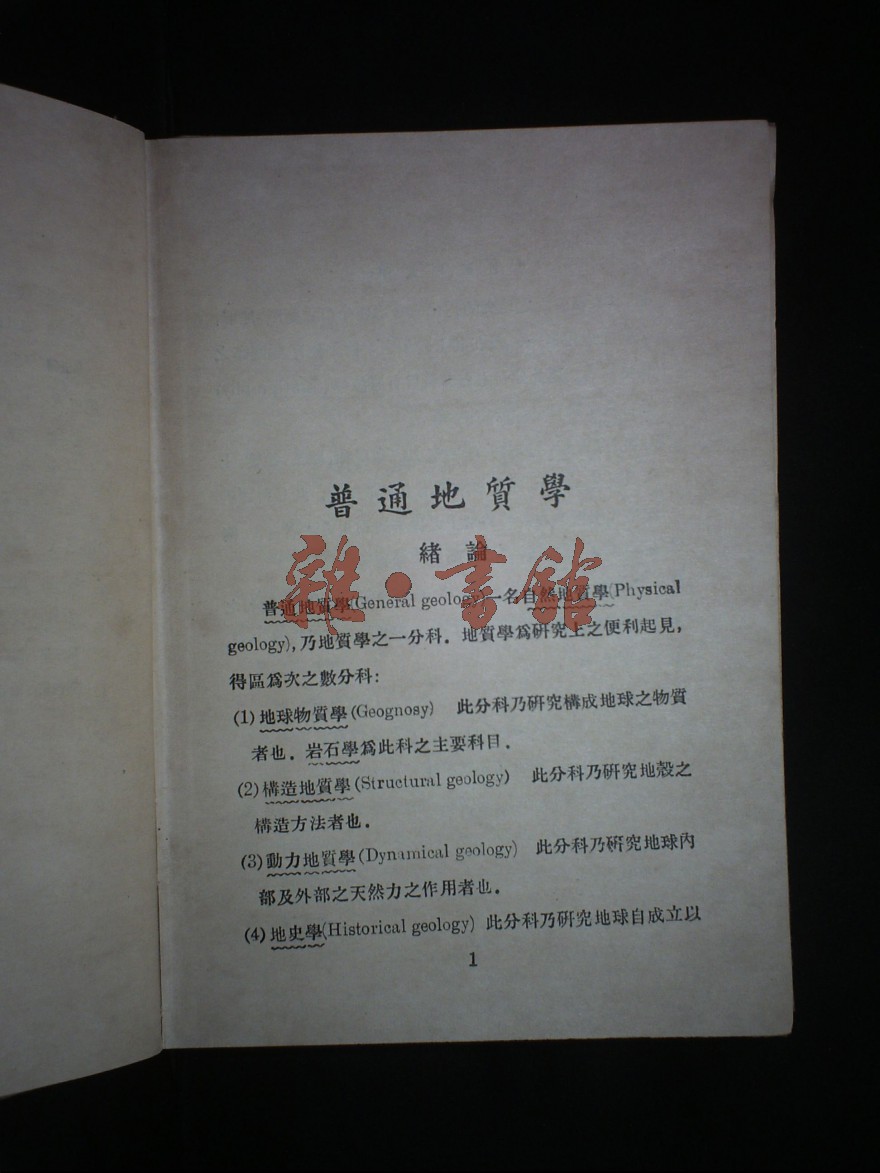 普通地質學
緒論
雜·書館
普通地質學(General geology)一名自然地質學(Physical
geology),乃地質學之一分科．地質學爲硏究上之便利起見,
得區爲次之數分科:
(1)地球物質學(Geognosy) 此分科乃硏究構成地球之物質
者也．岩石學爲此科之主要科目．
(2)構造地質學(Structural geology) 此分科乃硏究地殼之
構造方法者也．
(3)動力地質學(Dynamical geology) 此分科乃硏究地球內
部及外部之天然力之作用者也．
(4)地史學(Historical geology) 此分科乃硏究地球自成立以
1